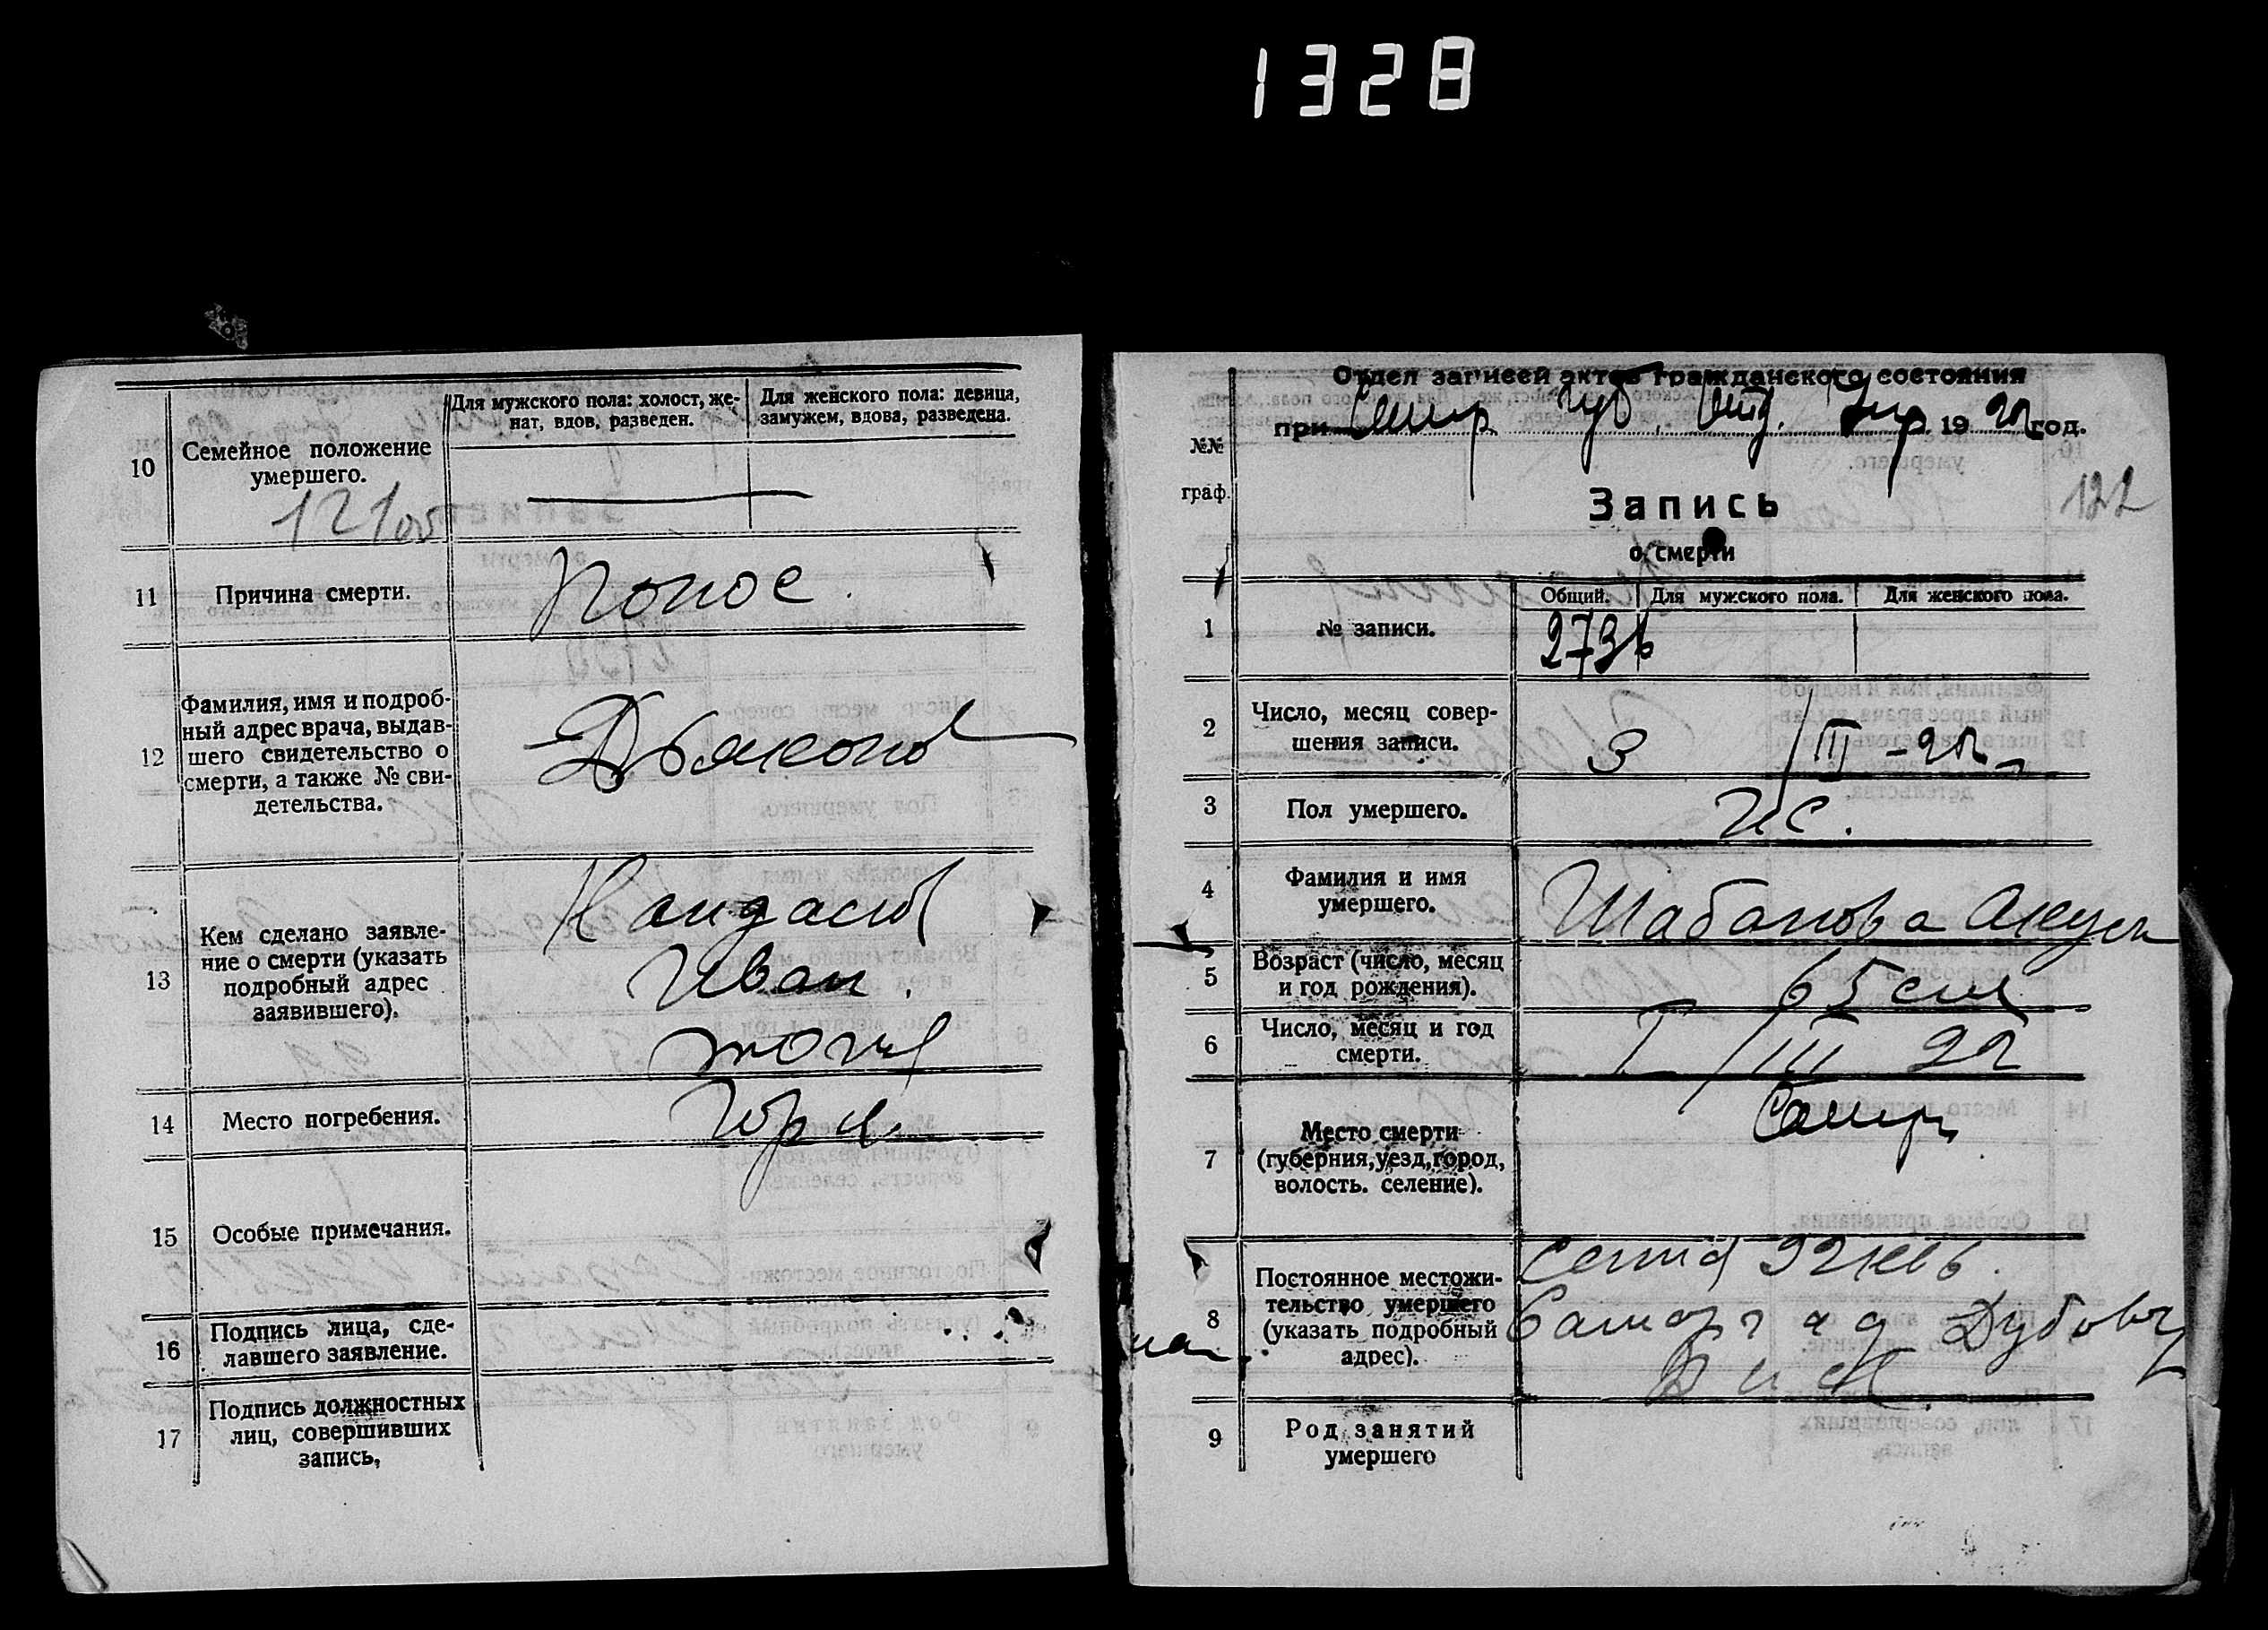 1328
10
Семейное положение
умершего.
Для мужского пола: холост, же-
нат, вдов, разведен.
Для женского пола: девица,
замужем, вдова, разведена.
11
Причина смерти.
Понос.
12
Фамилия, имя и подроб-
ный адрес врача, выдав-
шего свидетельство о
смерти, а также № сви-
детельства.
Дьяконов
13
Кем сделано заявле-
ние о смерти (указать
подробный адрес
заявившего).
Иван.
14
Место погребения.
15
Особые примечания.
16
Подпись лица, сде-
лавшего заявление.
17
Подпись должностных
лиц, совершивших
запись,
Отдел записей актов гражданского состояния
при Симф. Губ. Отд. Упр. 1922 год.
№№
граф.
122
Запись
о смерти
Общий.
Для мужского пола.
Для женского пола.
1
№ записи.
2
Число, месяц совер-
шения записи.
3 / III - 22
3
Пол умершего.
4
Фамилия и имя
умершего.
Шабанова
5
Возраст (число, месяц
и год рождения).
65
6
Число, месяц и год
смерти.
/III 22
7
Место смерти
(губерния, уезд, город,
волость. селение).
Симф.
8
Постоянное местожи-
тельство умершего
(указать подробный
адрес).
9
Род занятий
умершего